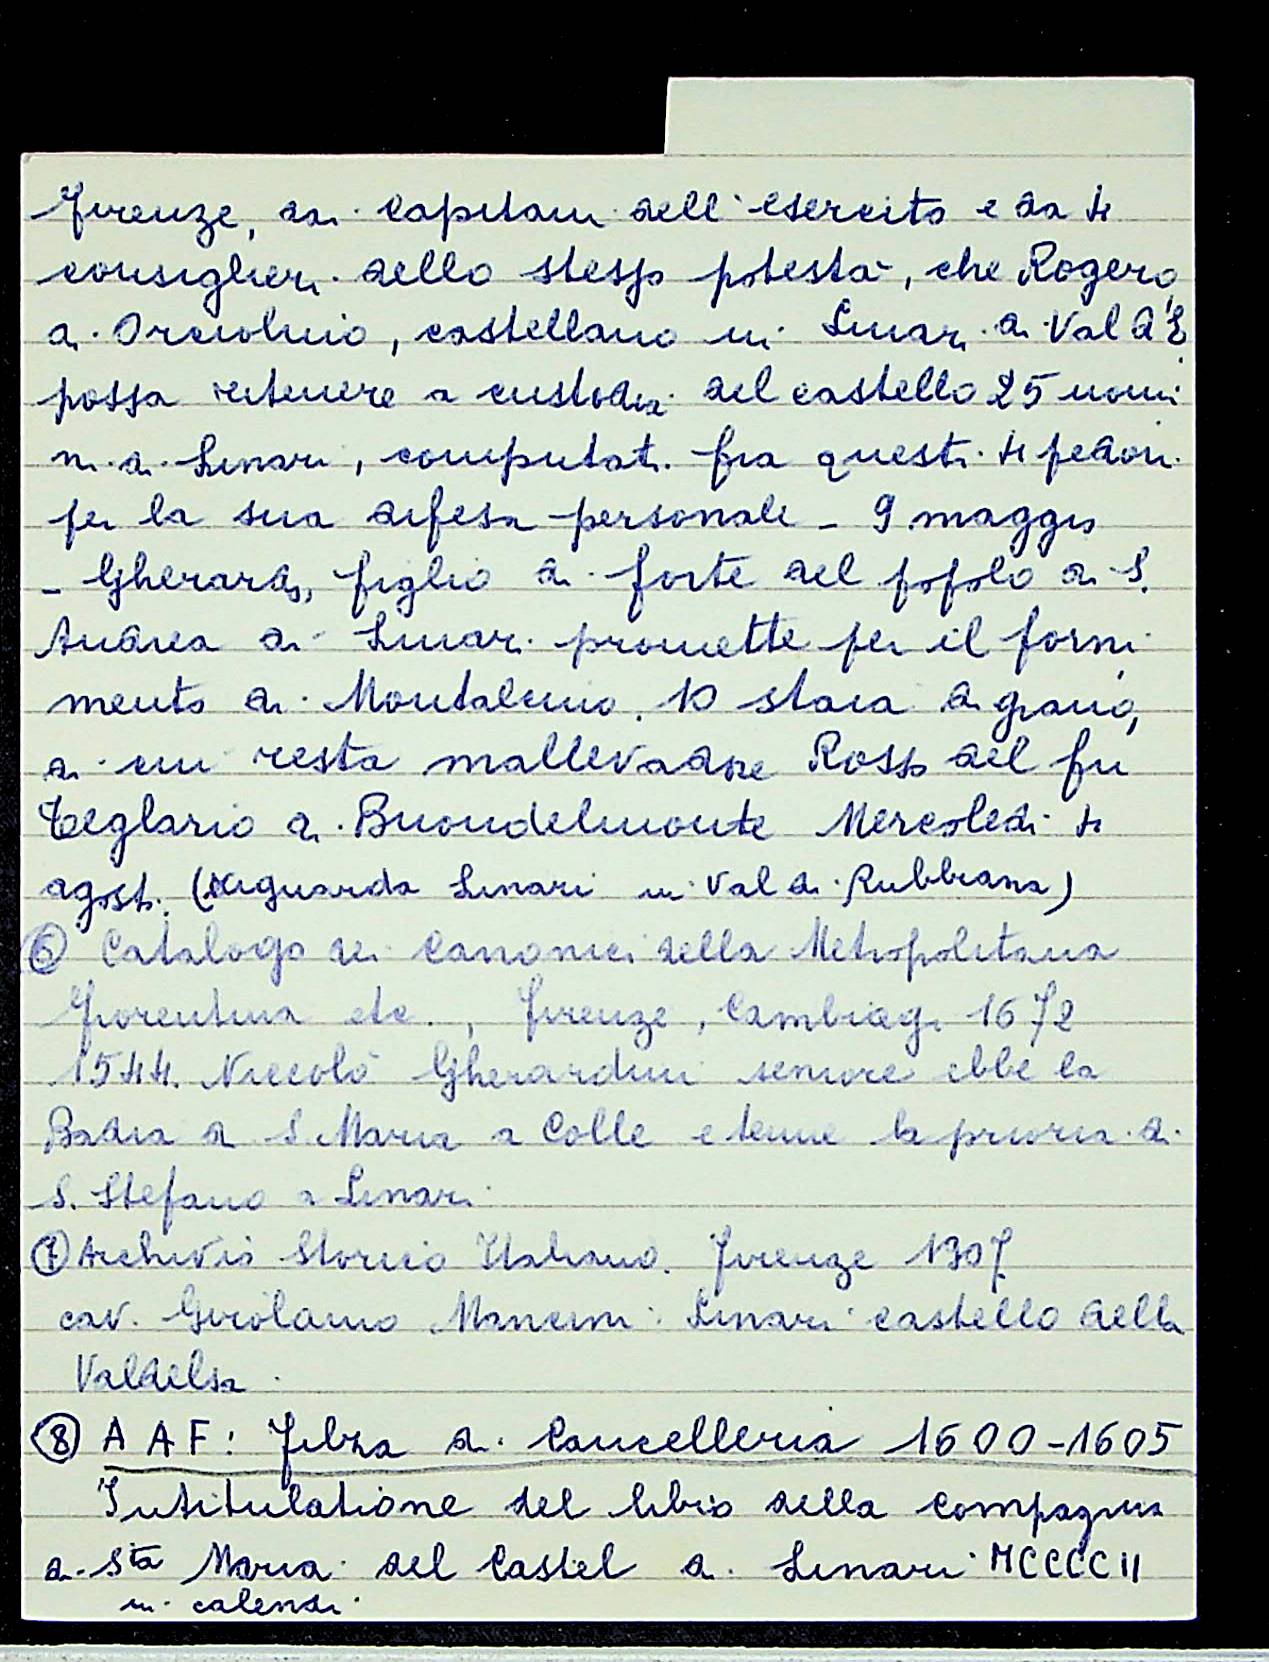 Firenze, dai capitani dell'esercito e da 4
consiglieri dello stesso potestà, che Rogero
di Orciolino, castellano in Linari di Val d'E.
possa ritenere a custodia del castello 25 uomi
ni di Linari, computati fra questi 4 pedoni
per la sua difesa personale - 9 maggio
- Gherardo, figlio di forte del popolo di S.
Andrea di Linari promette per il forni
mento di Montalcino, 10 staia di grano,
di cui resta mallevadore Rosso del fu
Teglario di Buondelmonte Mercoledì 4
agosto. (riguarda Linari in Val di Rubbiana)
⑥ Catalogo dei Canonici della Metropolitana
Fiorentina etc., Firenze, Cambiagi 1672
1544. Niccolò Gherardini seniore ebbe la
Badia di S. Maria a Colle e tenne la prioria di
S. Stefano a Linari
⑦ Archivio Storico Italiano. Firenze 1907
cav. Girolamo Mancini: Linari castello della
Valdelsa.
⑧ A A F: Filza di Cancelleria 1600-1605
Intitulatione del libro della compagnia
di Sta Maria del Castel di Linari MCCCCII
in calendi